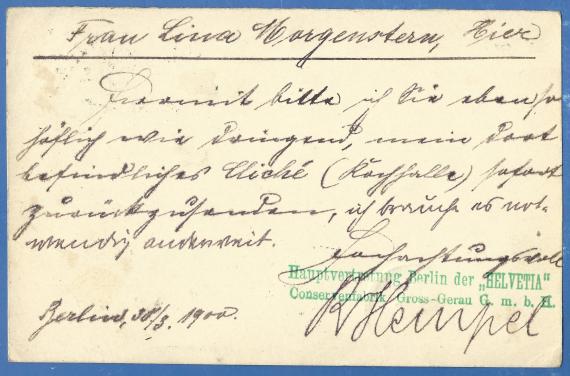 Frau Lina Morgenstern, Hier
Hiermit bitte ich Sie ebenso
höflich wie dringend, mein dort
befindliches Cliché (Kochhalle) sofort
zurückzusenden, ich brauche es not-
wendig anderweit.
Hochachtungsvoll
Hauptvertretung Berlin der „HELVETIA“
Conservenfabrik Gross-Gerau G. m. b. H.
Hempel
Berlin, 1900.